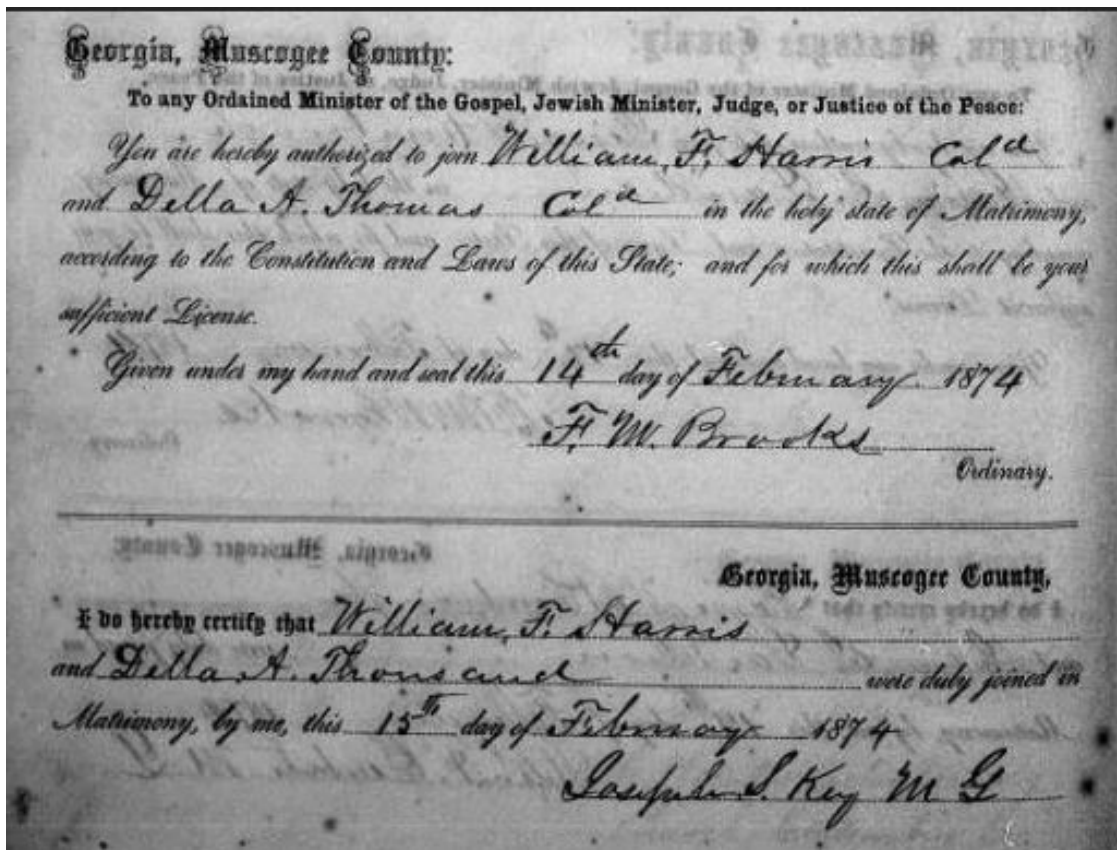 Georgia, Muscogee County:
To any Ordained Minister of the Gospel, Jewish Minister, Judge, or Justice of the Peace:
You are hereby authorized to join William, F. Harris Colᵈ
and Della A. Thomas Colᵈ in the holy state of Matrimony,
according to the Constitution and Laws of this State; and for which this shall be your
sufficient License.
Given under my hand and seal this 14th day of February 1874
F. M. Brooks
Ordinary.
Georgia, Muscogee County,
I do hereby certify that William, F. Harris
and Della A. Thousand were duly joined in
Matrimony, by me, this 15th day of February 1874
Joseph S. Key M G